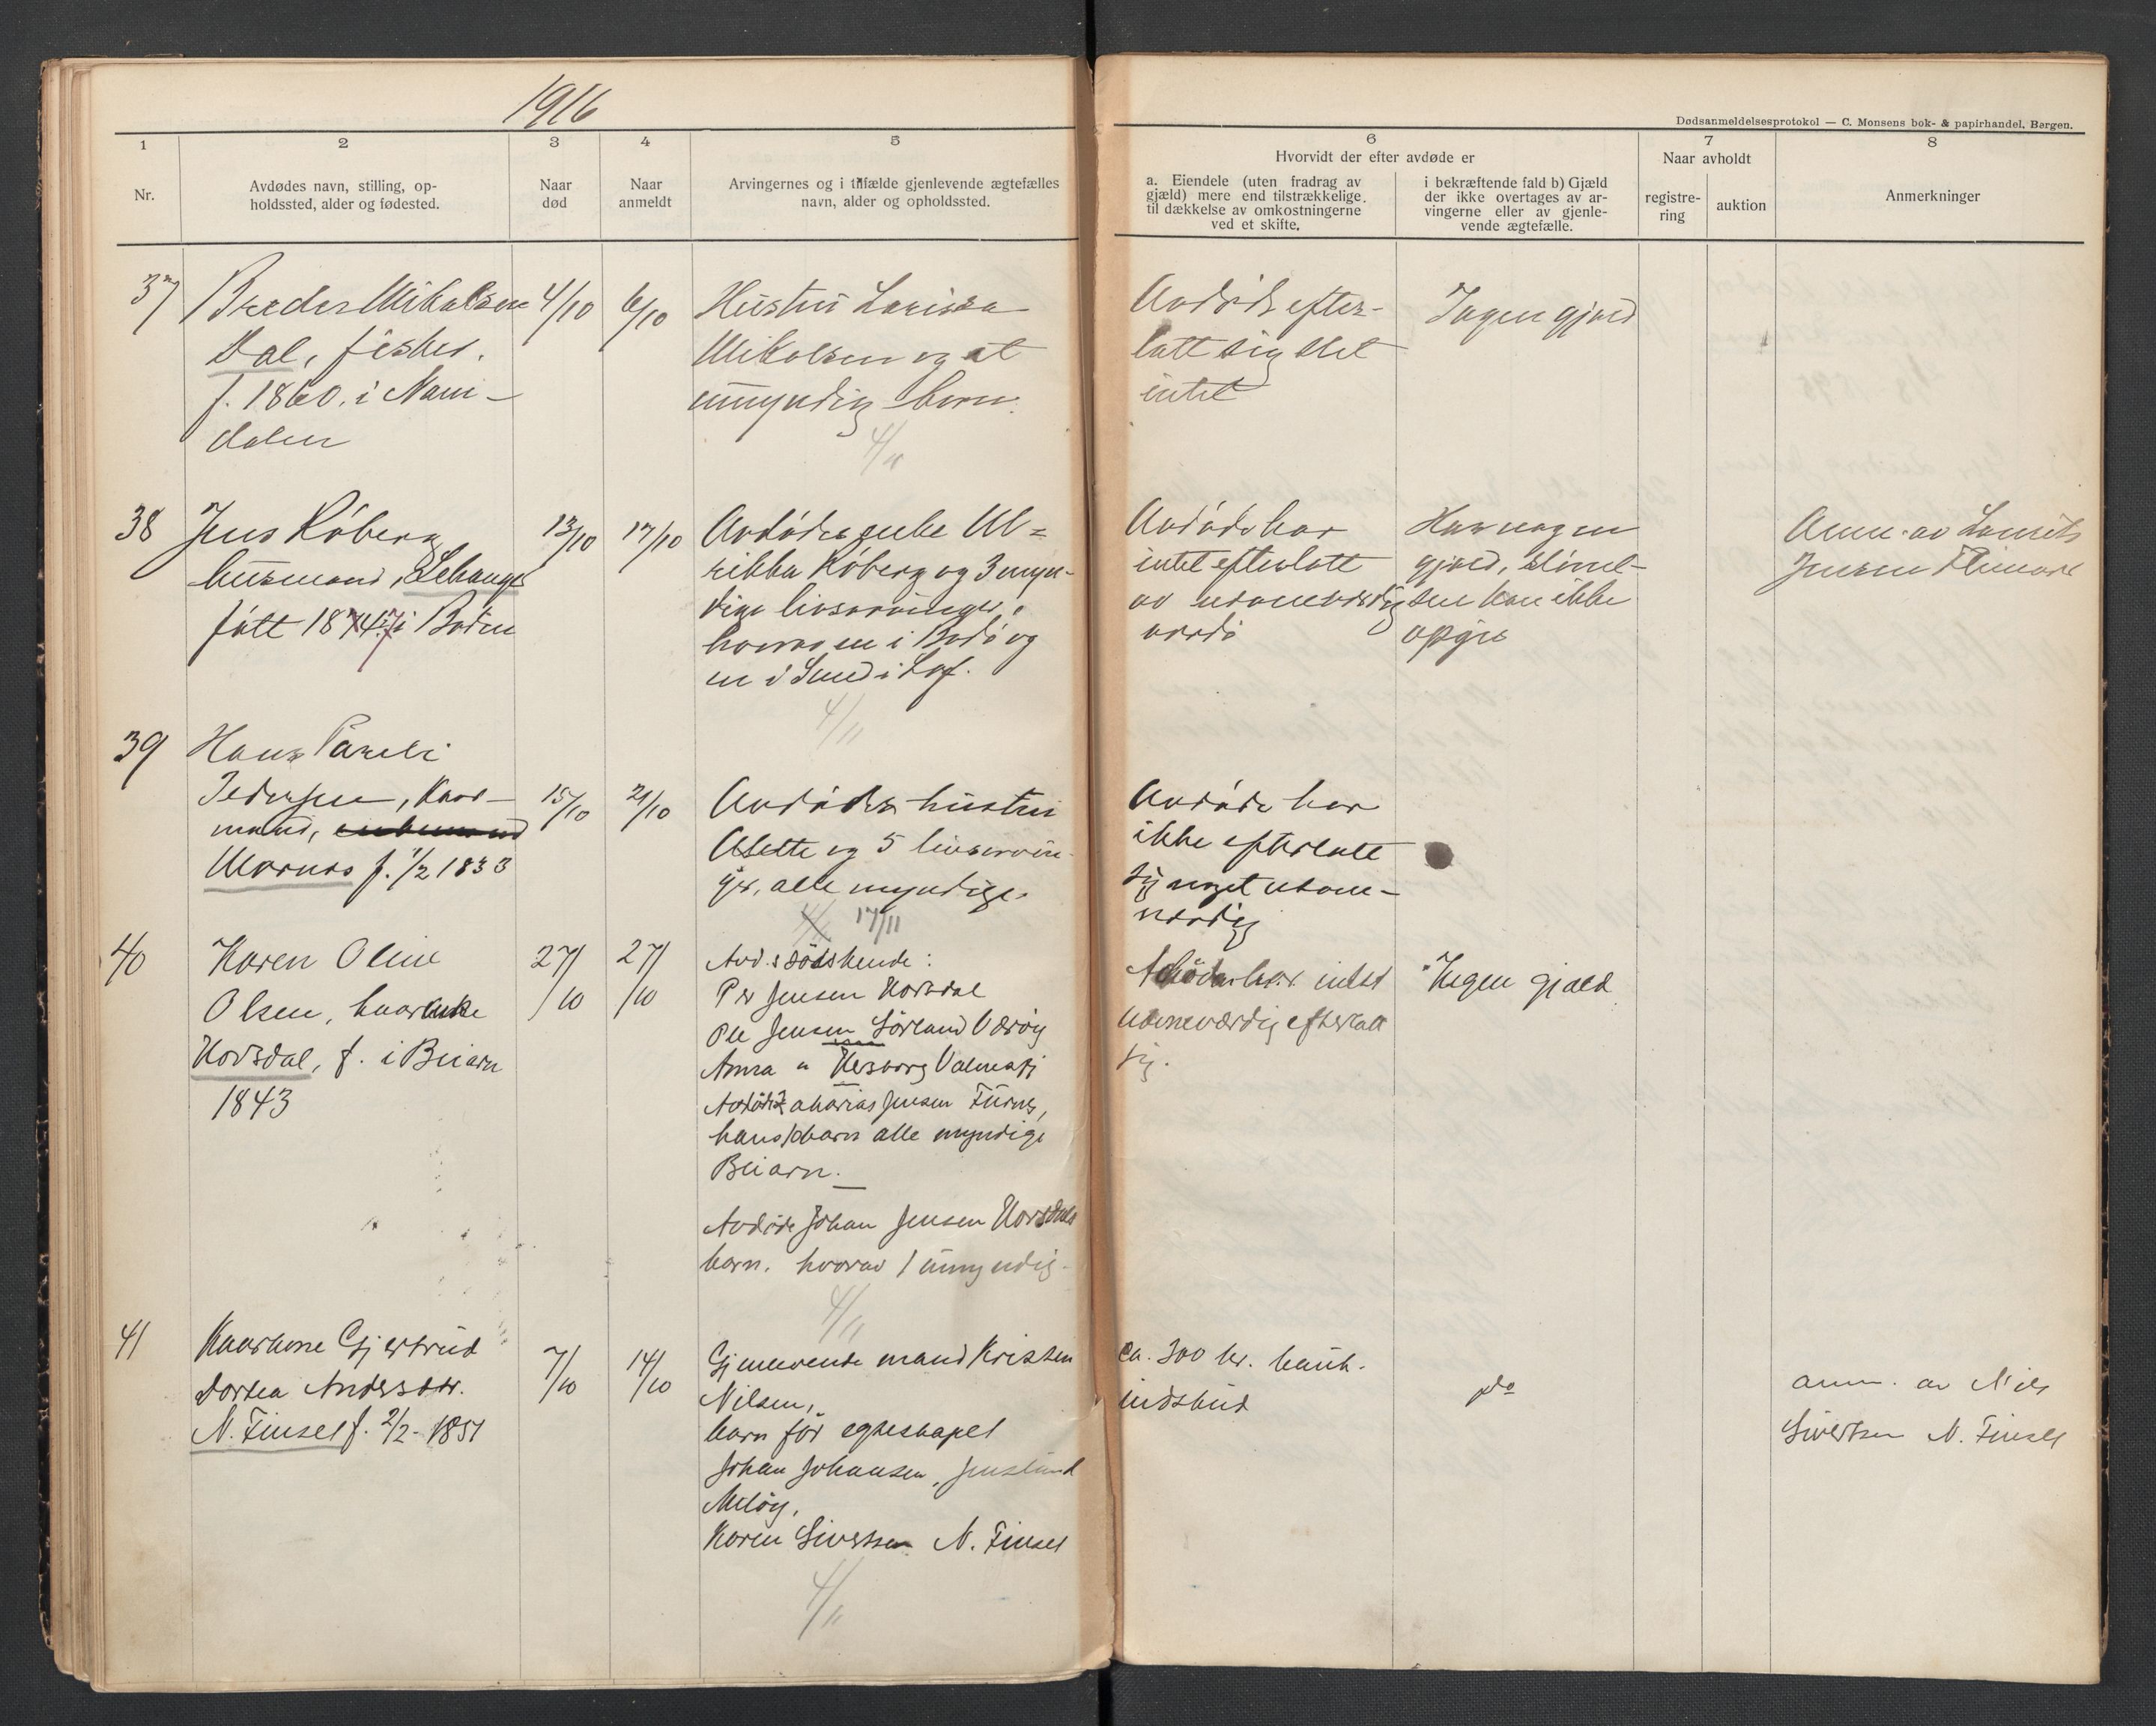 1916
Dødsanmeldelsesprotokol — C. Monsens bok- & papirhandel, Bergen.
1
2
3
4
5
6
7
8
Nr.
Avdødes navn, stilling, op-
holdssted, alder og fødested.
Naar
død
Naar
anmeldt
Arvingernes og i tilfælde gjenlevende ægtefælles
navn, alder og opholdssted.
Hvorvidt der efter avdøde er
a. Eiendele (uten fradrag av
gjæld) mere end tilstrækkelige
til dækkelse av omkostningerne
ved et skifte.
i bekræftende fald b) Gjæld
der ikke overtages av ar-
vingerne eller av gjenle-
vende ægtefælle.
Naar avholdt
registre-
ring
auktion
Anmerkninger
37
Mikalsen
Dal, fisker.
f. 1860. i Nam-
dalen
4/10
6/10
Hustru
Mikalsen og et
umyndig barn.
4/11
Avdøde efter-
latt sig slet
intet
Ingen gjæld
38
Jens Røberg
husmand,
født 1874 i Bodin
13/10
17/10
Avdødes enke Ul-
rikka Røberg og 3 myn-
dige livsarvinger,
hvorav en i Bodø og
en i Sund i Lof.
4/11
Avdøde har
intet efterlatt
av nævneværdig
værdi
Har nogen
gjæld, størrel-
sen kan ikke
opgis
Anm. av
Jensen
39
Hans Pareli
Pedersen, kaar-
mand,
Mornes f. 1/2 1833
15/10
21/10
Avdødes hustru
Alette og 5 livsarvin-
ger, alle myndige.
4/11 17/11
Avdøde har
ikke efterlatt
sig noget nævne-
værdig
40
Karen Oline
Olsen, kaarenke
Horsdal, f. i Beiarn
1843
27/10
27/10
Avd.s søskende:
Per Jensen Horsdal
Ole Jensen Sørland Værøy
Anna "
Avdøde Zakarias Jensen
hans barn alle myndige
Beiarn.
Avdøde Johan Jensen Horsdals
barn. hvorav 1 umyndig.
4/11
Avdøde har intet
nævneværdig efterlatt
sig.
Ingen gjæld
41
Kaarkone Gjertrud
Dortea Andersdtr.
N. Finset f. 2/2 - 1851
7/10
14/10
Gjenlevende mand Kristen
Nilsen,
barn før egteskapet
Johan Johansen,
Meløy,
Karen Sivertsen N. Finset
4/11
Ca. 300 kr. bank-
indskud
do
anm. av Nils
Sivertsen N. Finset